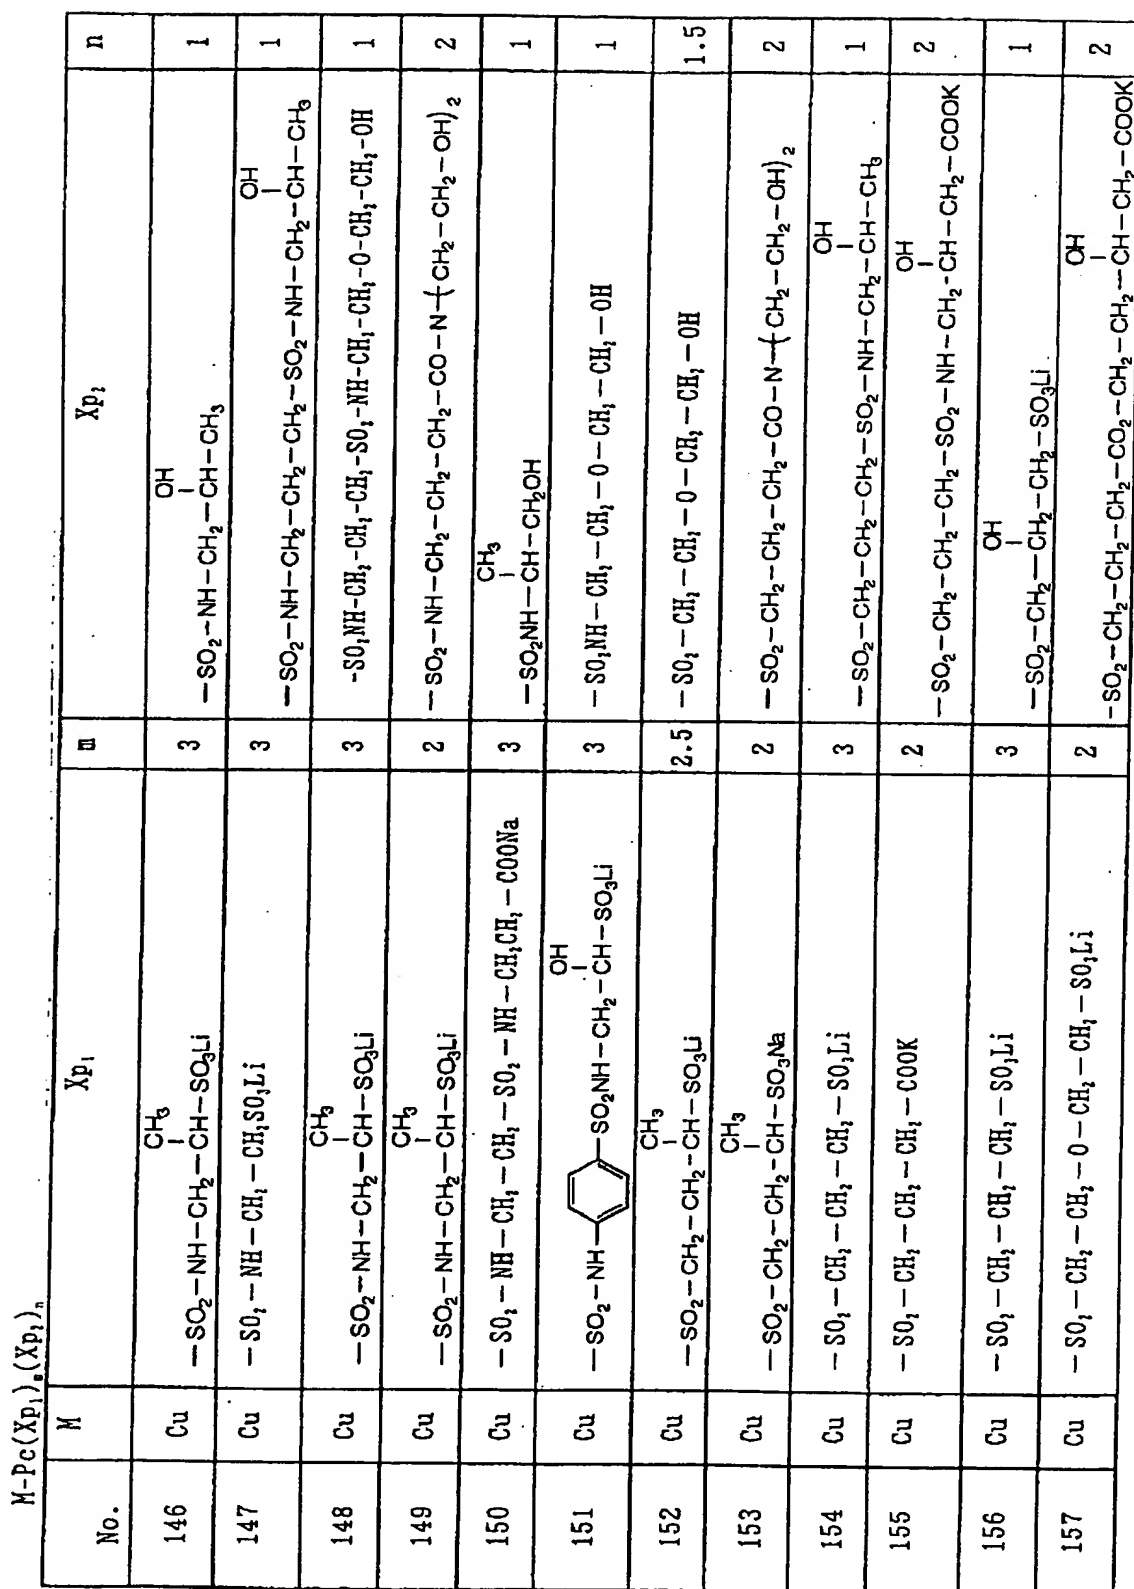 M-Pc(Xp₁)ₘ(Xp₂)ₙ
No. M Xp₁ m Xp₂ n
146 Cu
CH₃
—SO₂—NH—CH₂—CH—SO₃Li
3
OH
—SO₂—NH—CH₂—CH—CH₃
1
147 Cu —SO₂—NH—CH₂—CH₂SO₃Li 3
OH
—SO₂—NH—CH₂—CH₂—CH₂—SO₂—NH—CH₂—CH—CH₃
1
148 Cu
CH₃
—SO₂—NH—CH₂—CH—SO₃Li
3 -SO₂NH-CH₂-CH₂-SO₂-NH-CH₂-CH₂-O-CH₂-CH₂-OH 1
149 Cu
CH₃
—SO₂—NH—CH₂—CH—SO₃Li
2 —SO₂—NH—CH₂—CH₂—CH₂—CO—N—(CH₂—CH₂—OH)₂ 2
150 Cu —SO₂—NH—CH₂—CH₂—SO₂—NH—CH₂CH₂—COONa 3
CH₃
—SO₂NH—CH—CH₂OH
1
151 Cu
OH
—SO₂—NH— —SO₂NH—CH₂—CH—SO₃Li
3 —SO₂NH—CH₂—CH₂—O—CH₂—CH₂—OH 1
152 Cu
CH₃
—SO₂—CH₂—CH₂—CH—SO₃Li
2.5 —SO₂—CH₂—CH₂—O—CH₂—CH₂—OH 1.5
153 Cu
CH₃
—SO₂—CH₂—CH₂—CH—SO₃Na
2 —SO₂—CH₂—CH₂—CH₂—CO—N—(CH₂—CH₂—OH)₂ 2
154 Cu —SO₂—CH₂—CH₂—CH₂—SO₃Li 3
OH
—SO₂—CH₂—CH₂—CH₂—SO₂—NH—CH₂—CH—CH₃
1
155 Cu —SO₂—CH₂—CH₂—CH₂—COOK 2
OH
—SO₂—CH₂—CH₂—CH₂—SO₂—NH—CH₂—CH—CH₂—COOK
2
156 Cu —SO₂—CH₂—CH₂—CH₂—SO₃Li 3
OH
—SO₂—CH₂—CH₂—CH₂—SO₃Li
1
157 Cu —SO₂—CH₂—CH₂—O—CH₂—CH₂—SO₃Li 2
OH
—SO₂—CH₂—CH₂—CH₂—CO₂—CH₂—CH₂—CH—CH₂—COOK
2